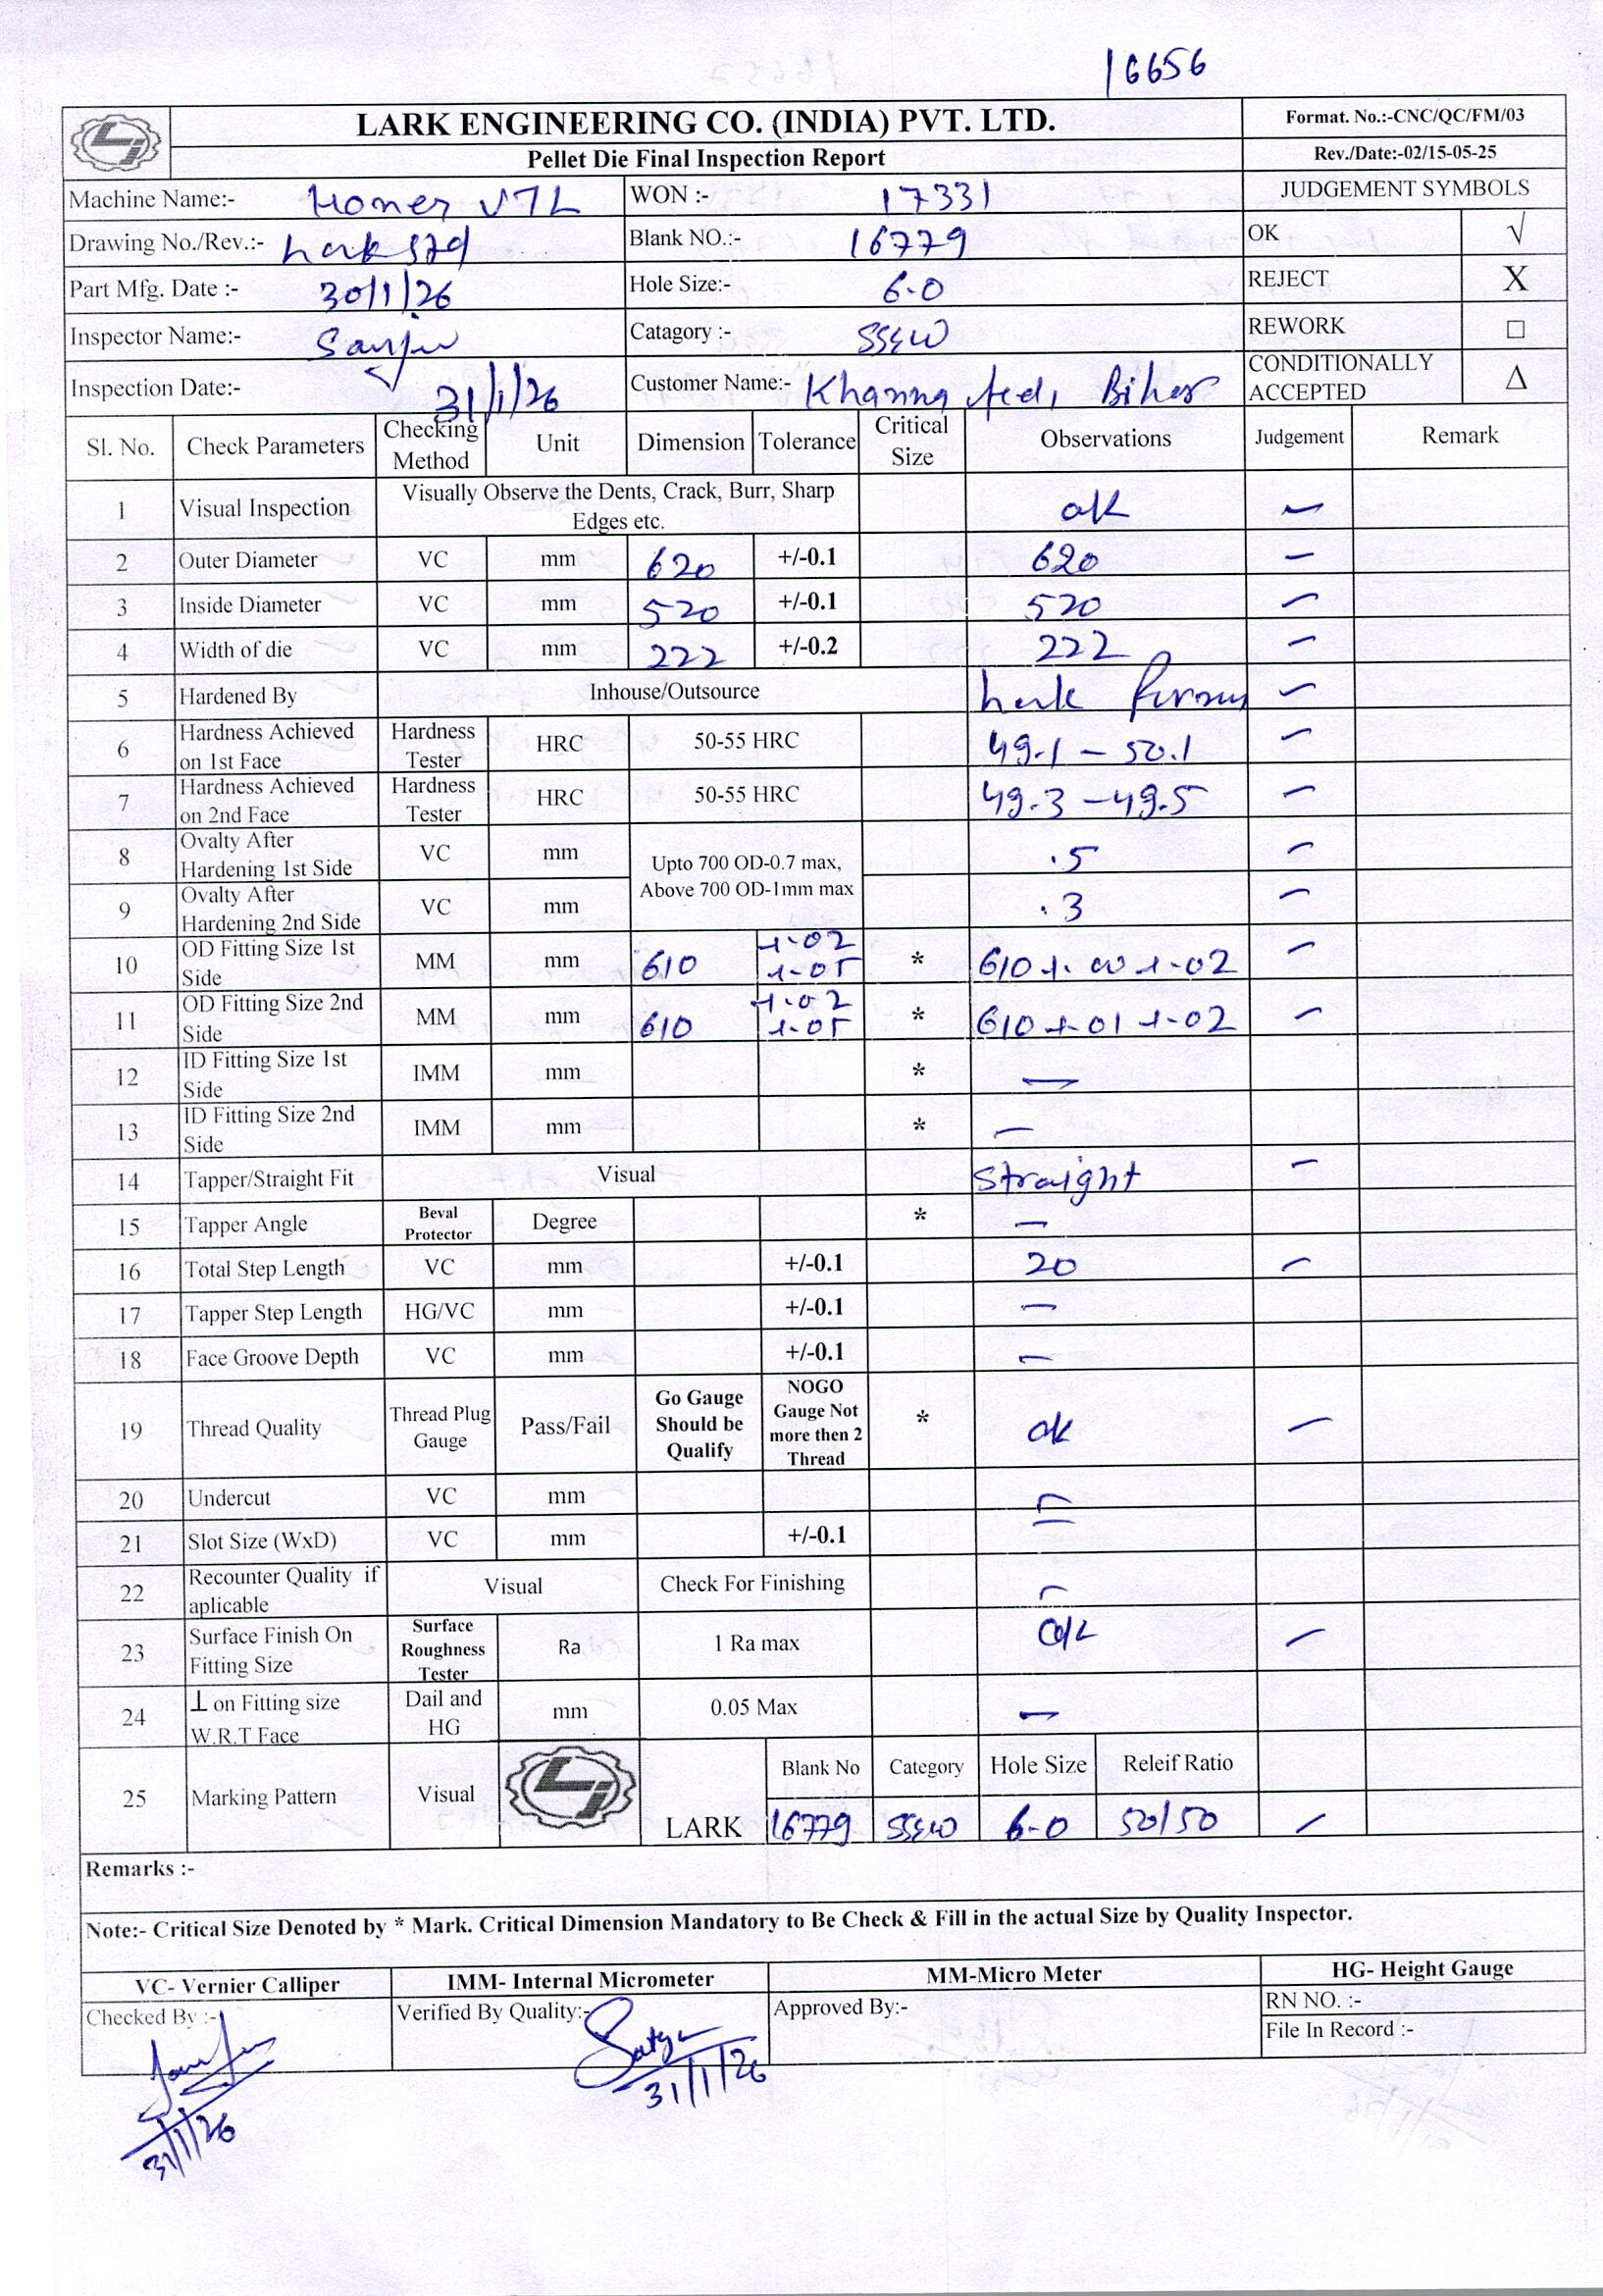 16656
LARK ENGINEERING CO. (INDIA) PVT. LTD.
Format. No.:-CNC/QC/FM/03
Pellet Die Final Inspection Report
Rev./Date:-02/15-05-25
Machine Name:- Homer VTL WON :- 17331 JUDGEMENT SYMBOLS
Drawing No./Rev.:- Lark std Blank NO.:- 16779 OK √
Part Mfg. Date :- 30/1/26 Hole Size:- 6.0 REJECT X
Inspector Name:- Sanju Catagory :- REWORK □
Inspection Date:- 31/1/26 Customer Name:- Khanna feed, Bihar CONDITIONALLY ACCEPTED Δ
Sl. No. Check Parameters Checking Method Unit Dimension Tolerance Critical Size Observations Judgement Remark
1 Visual Inspection Visually Observe the Dents, Crack, Burr, Sharp Edges etc. ok
2 Outer Diameter VC mm 620 +/-0.1 620 –
3 Inside Diameter VC mm 520 +/-0.1 520 –
4 Width of die VC mm 222 +/-0.2 222 –
5 Hardened By Inhouse/Outsource Lark –
6 Hardness Achieved on 1st Face Hardness Tester HRC 50-55 HRC 49.1 – 50.1 –
7 Hardness Achieved on 2nd Face Hardness Tester HRC 50-55 HRC 49.3 – 49.5 –
8 Ovalty After Hardening 1st Side VC mm Upto 700 OD-0.7 max, Above 700 OD-1mm max .5 –
9 Ovalty After Hardening 2nd Side VC mm .3 –
10 OD Fitting Size 1st Side MM mm 610 +.02 +.05 * 610 +.00 +.02 –
11 OD Fitting Size 2nd Side MM mm 610 +.02 +.05 * 610 +.01 +.02 –
12 ID Fitting Size 1st Side IMM mm * –
13 ID Fitting Size 2nd Side IMM mm * –
14 Tapper/Straight Fit Visual Straight –
15 Tapper Angle Beval Protector Degree * –
16 Total Step Length VC mm +/-0.1 20 –
17 Tapper Step Length HG/VC mm +/-0.1 –
18 Face Groove Depth VC mm +/-0.1 –
19 Thread Quality Thread Plug Gauge Pass/Fail Go Gauge Should be Qualify NOGO Gauge Not more then 2 Thread * ok –
20 Undercut VC mm –
21 Slot Size (WxD) VC mm +/-0.1 –
22 Recounter Quality if aplicable Visual Check For Finishing –
23 Surface Finish On Fitting Size Surface Roughness Tester Ra 1 Ra max ok –
24 ⊥ on Fitting size W.R.T Face Dail and HG mm 0.05 Max –
25 Marking Pattern Visual LARK Blank No Category Hole Size Releif Ratio
16779 6.0 50/50 –
Remarks :-
Note:- Critical Size Denoted by * Mark. Critical Dimension Mandatory to Be Check & Fill in the actual Size by Quality Inspector.
VC- Vernier Calliper IMM- Internal Micrometer MM-Micro Meter HG- Height Gauge
Checked By :- Verified By Quality:- Satya Approved By:- RN NO. :-
File In Record :-
31/1/26
31/1/26